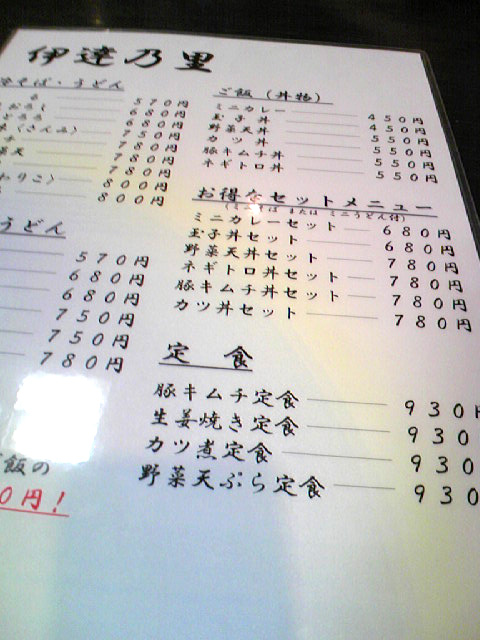 伊達乃里
そば・うどん
570円
680円
680円
750円
780円
780円
780円
800円
800円
うどん
570円
680円
680円
750円
750円
780円
飯の
0円！
ご飯（丼物）
ミニカレー 450円
玉子丼 450円
野菜天丼 550円
カツ丼 550円
豚キムチ丼 550円
ネギトロ丼 550円
お得なセットメニュー
ミニカレーセット 680円
玉子丼セット 680円
野菜天丼セット 780円
ネギトロ丼セット 780円
豚キムチ丼セット 780円
カツ丼セット 780円
定食
豚キムチ定食 930円
生姜焼き定食 930
カツ煮定食 930
野菜天ぷら定食 930